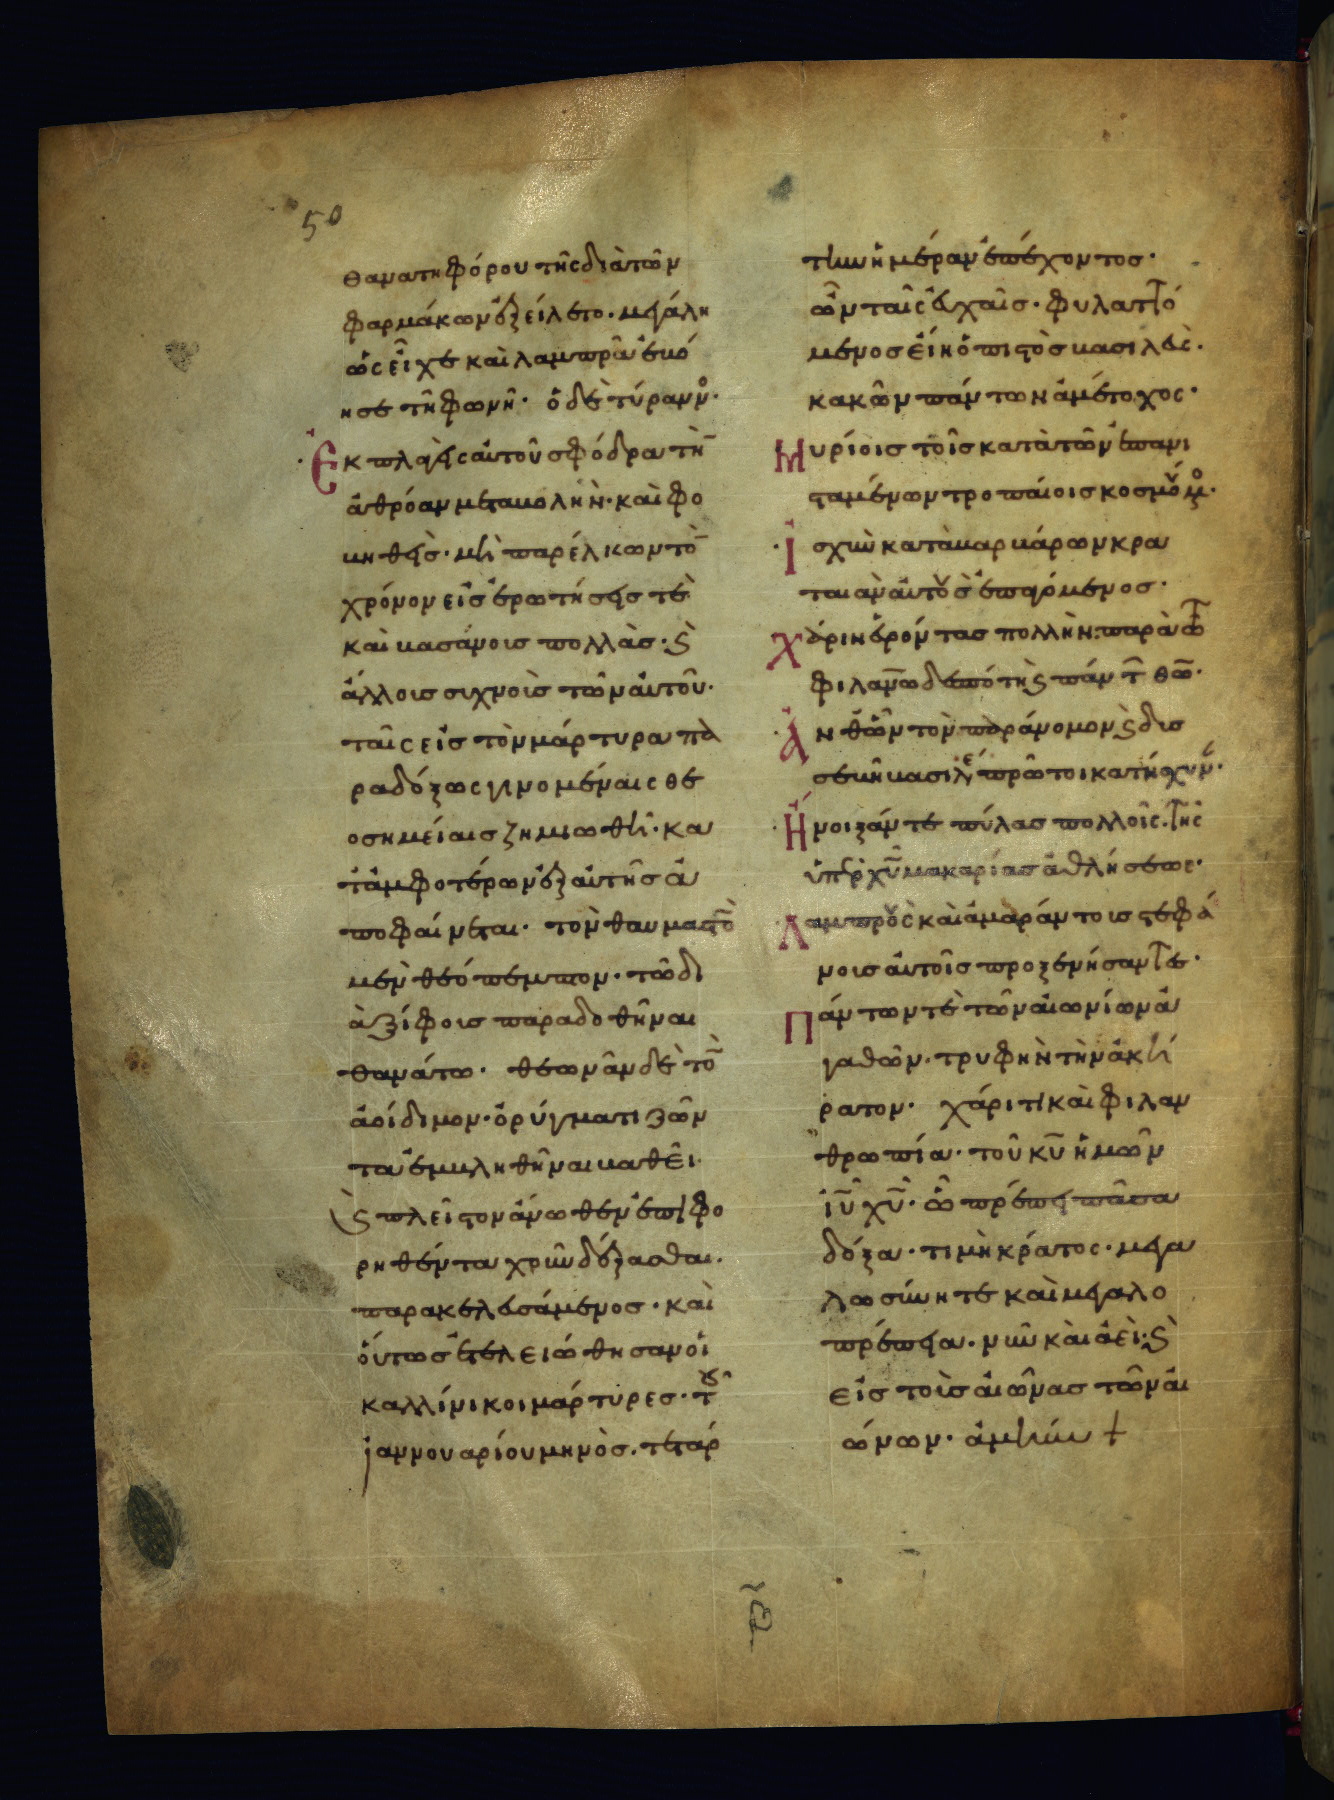 50
θανατηφόρου τῆς διὰ τῶν
φαρμάκων ἐξείλετο· μεγάλη
ὡς εἶχε καὶ λαμπρᾶ ἐβό
ησε τῆ φωνῆ· ὁ δὲ τύρανν^ο·
Ἐκπλαγεὶς αὐτοῦ σφόδρα τὴ̄
ἀθρόαν μεταβολὴν· καὶ φο
βηθεὶς· μὴ παρέλκων τὸ̄
χρόνον εἰς ἐρωτήσεις τὲ
καὶ βασάνοις πολλὰς· ϛ̀
ἄλλοις συχνοὶς τῶν αὐτοῦ·
ταῖς εἰς τὸν μάρτυρα πα
ραδόξως γινομέναις θε
οσημείαις ζημιωθῆ· κα
τ' ἀμφοτέρων ἐξ αὐτῆς ἀ
ποφαίνεται· τὸν θαυμαστὸ̄
μὲν θεόπεμπτον· τῶ δι
ὰ ξίφοις παραδοθῆναι
θανάτω· θεωνᾶν δὲ τὸ̄
ἀοίδιμον· ὀρύγματι ζῶν
τα ἐμβληθῆναι βαθεῖ
ϛ̀ πλεῖστον ἄνωθεν ἐπιφο
ρηθέντα χοῦν δέξασθαι·
παρακελευσάμενος· καὶ
οὕτως ἐτελειώθησαν οἱ
καλλίνικοι μάρτυρες· τοῦ
ἰαννουαρίου μηνὸς· τετάρ
την ἡμέραν ἐπέχοντος·
ὧν ταῖς εὐχαῖς· φυλαττό
μενος εἴη ὁ πιστὸς βασιλεὺς·
κακῶν πάντων ἀμέτοχος·
Μυρίοις τοῖς κατὰ τῶν ἐπανι
σταμένων τροπαίοις κοσμούμ^ο·
Ἰσχὺν κατὰ βαρβάρων κρα
ταιὰν αὐτοὺς ἐπαγόμενος·
Χάριν εὑρόντας πολλὴν παρὰ τῶ
φιλαν̅ω δεσπότης πάντ̅ θω̅·
Ἀνθ' ὧν τὸν παράνομον ϛ̀ δυσ
σεβῆ βασιλέα πρῶτοι κατήσχυν·
Ἤνοιξάν τε πύλας πολλοῖς· τῆς
ὑπὲρ χυ̅ μακαρίας ἀθλήσεως·
Λαμπροὺς καὶ ἀμαράντοις στεφά
νοις αὐτοῖς προξενήσαντες·
Πάντων τὲ τῶν αἰωνίων ἀ
γαθῶν· τρυφὴν τὴν ἀκή
ρατον· χάριτι καὶ φιλαν
θρωπία· τοῦ κυ̅ ἡμῶν
ιυ̅ χυ̅· ὧ πρέπει πᾶσα
δόξα· τιμὴ κράτος· μεγα
λωσύνη τὲ καὶ μεγαλο
πρέπεια· νῦν καὶ ἀεὶ· ϛ̀
εἰς τοὶς αἰῶνας τῶν αἰ
ώνων· ἀμήν +